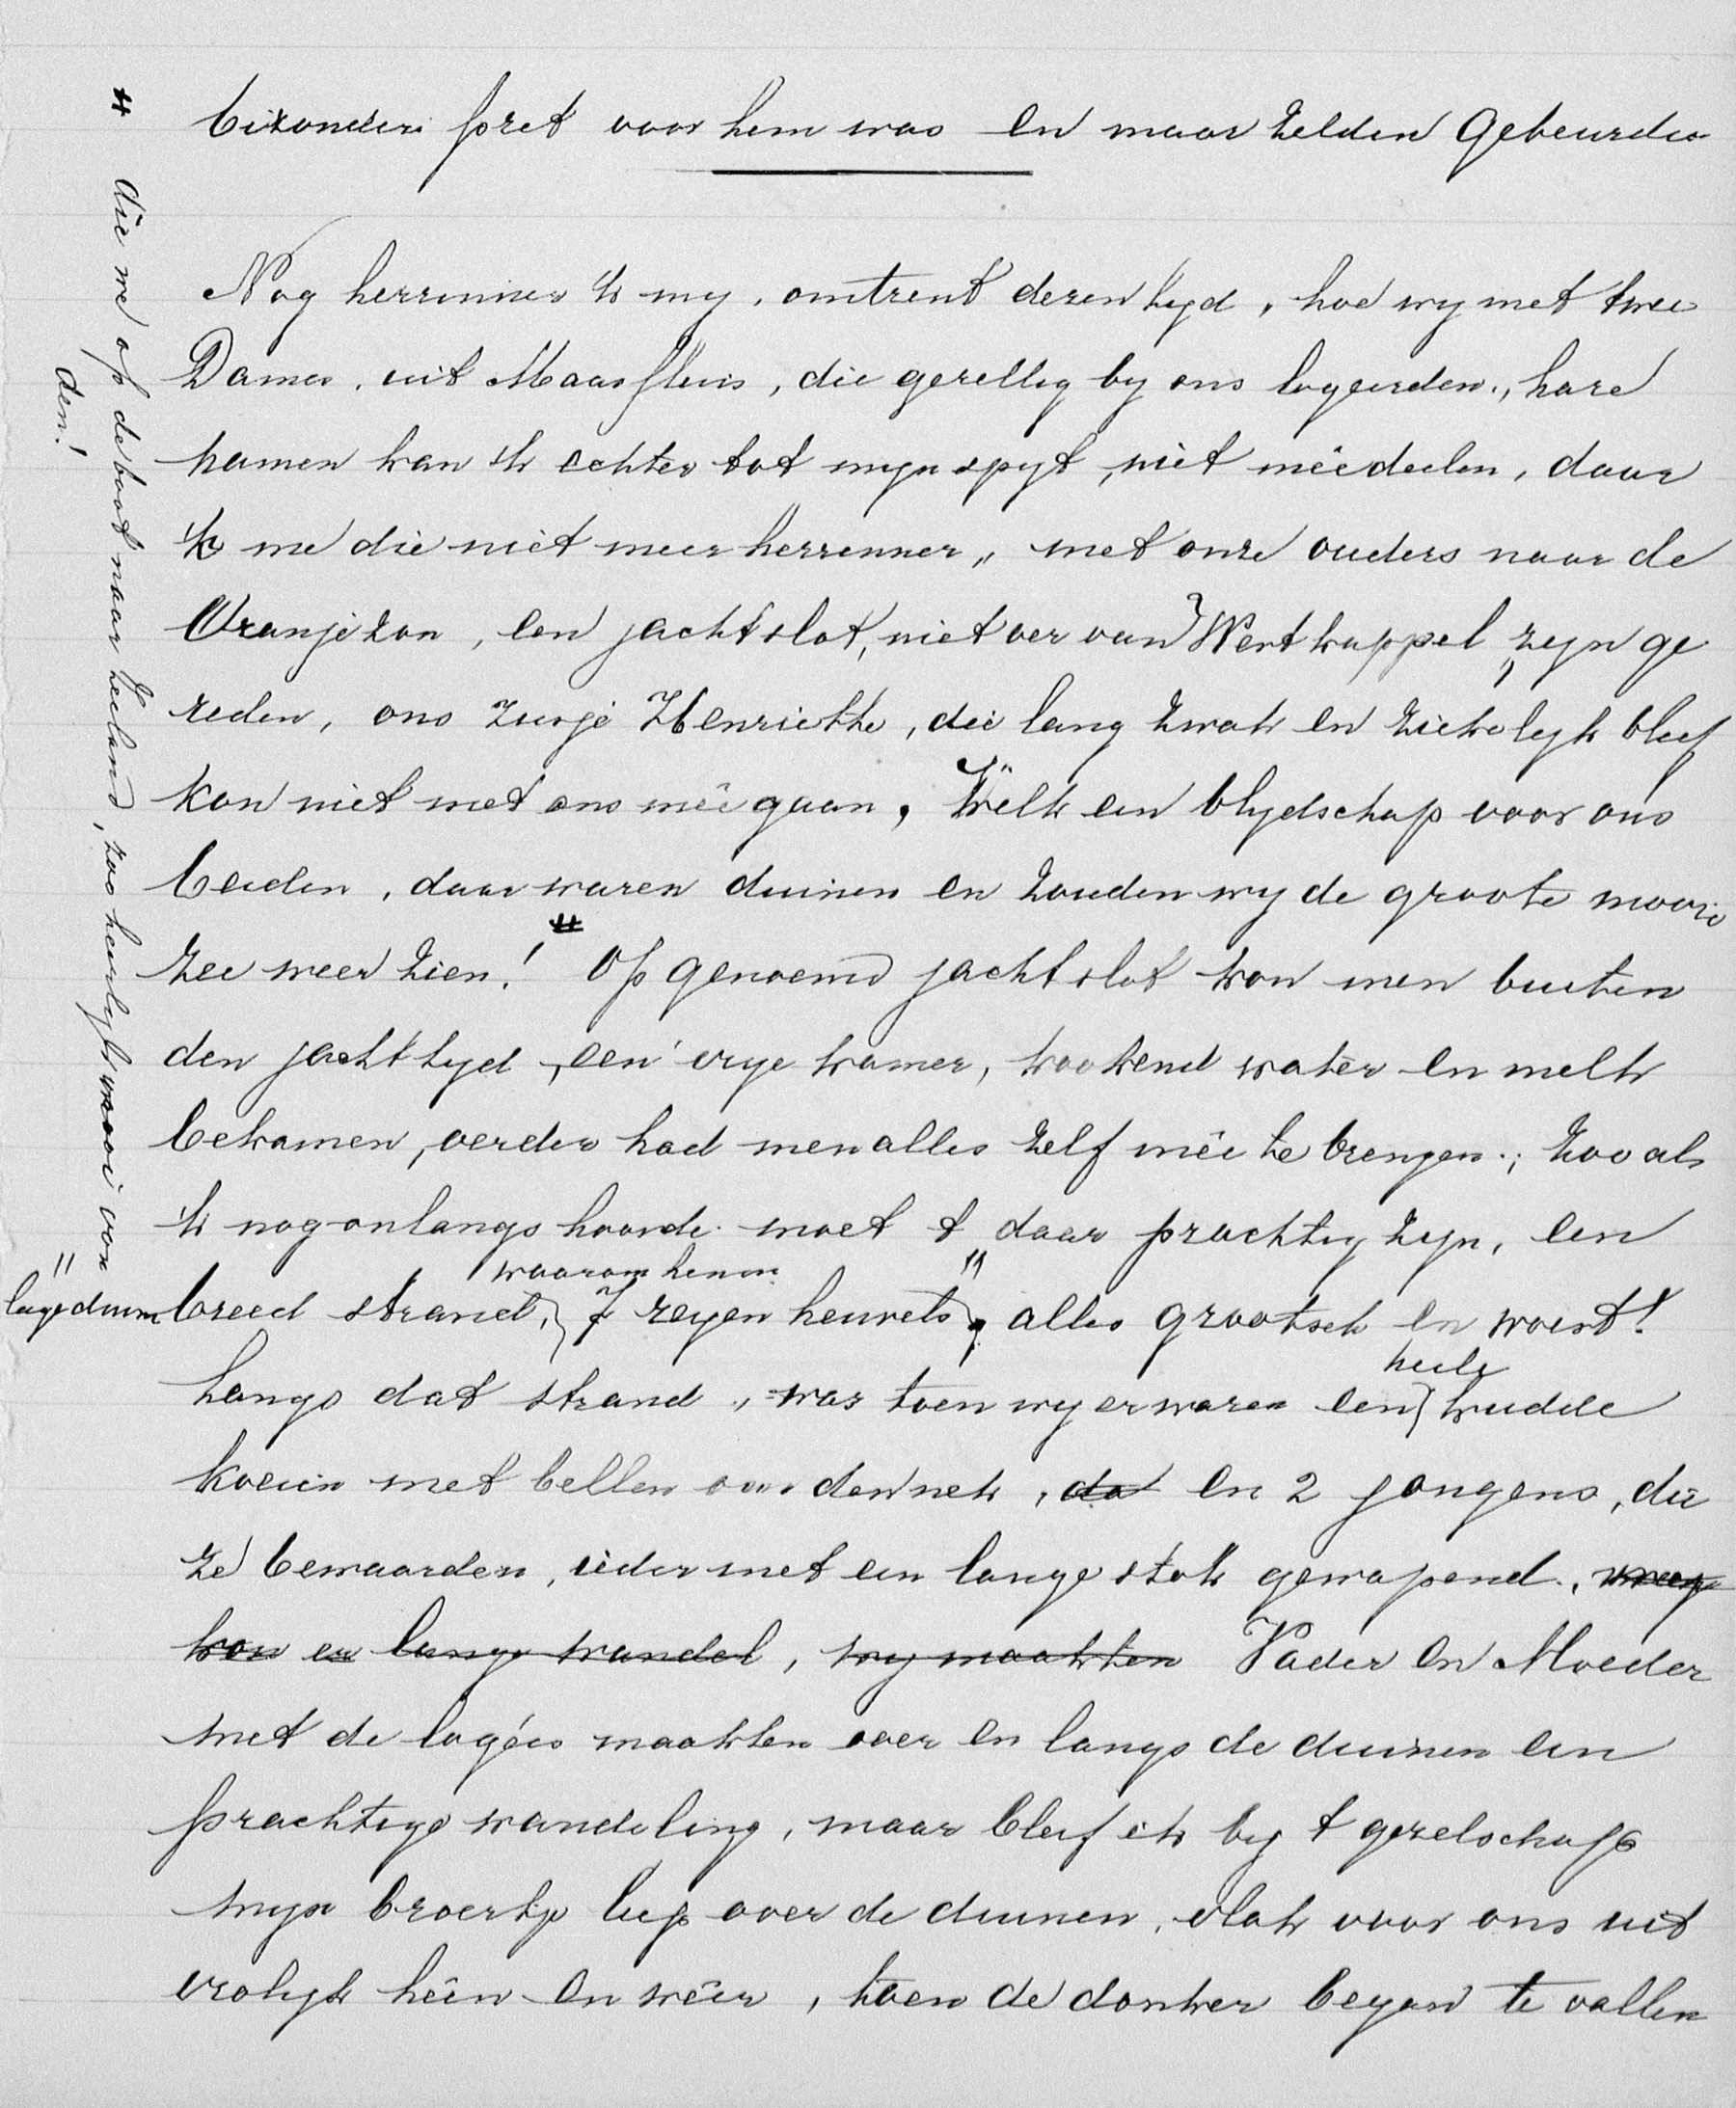 bizonder pret voor hem was en maar zelden gebeurde
Nog herrinner 'k my, omtrent dezen tyd, hoe wy met twee
Dames, uit Maassluis, die gezellig by ons logeerden, hare
namen kan 'k echter tot myn spyt, niet mêedeelen, daar
'k me die niet meer herrenner, met onze ouders naar de
Oranjezon, een jachtslot, niet ver van Westkappel, zyn ge
reden, ons zusje Henriette, die lang zwak en ziekelyk bleef
kon niet met ons mêegaan, Welk een blydschap voor ons
beiden, daar waren duinen en zouden wy de groote mooie
zee weer zien! # Op genoemd jachtslot kon men buiten
den jachttyd, een vrye kamer, kookend water en melk
bekomen, verder had men alles zelf mêe te brengen; zooals
'k nog onlangs hoorde moet 't daar prachtig zyn, een
waarom henen
breed strand, 7 reyen heuvels, alles grootsch en woest!
lage duin
heele
Langs dat strand, was toen wy er waren een kudde
koeien met bellen aan den nek, da en 2 jongens, die
ze bewaarden, ieder met een lange stok gewapend,
kon en lange wandel, wy maakten Vader en Moeder
met de logées maakten over en langs de duinen een
prachtige wandeling, maar bleef ik by 't gezelschap
myn broertje liep over de duinen, vlak voor ons uit
vrolyk hêen en wêer, toen de donker began te vallen
# die we op de boot naar Zeeland, zoo heerlyk mooi von
den!